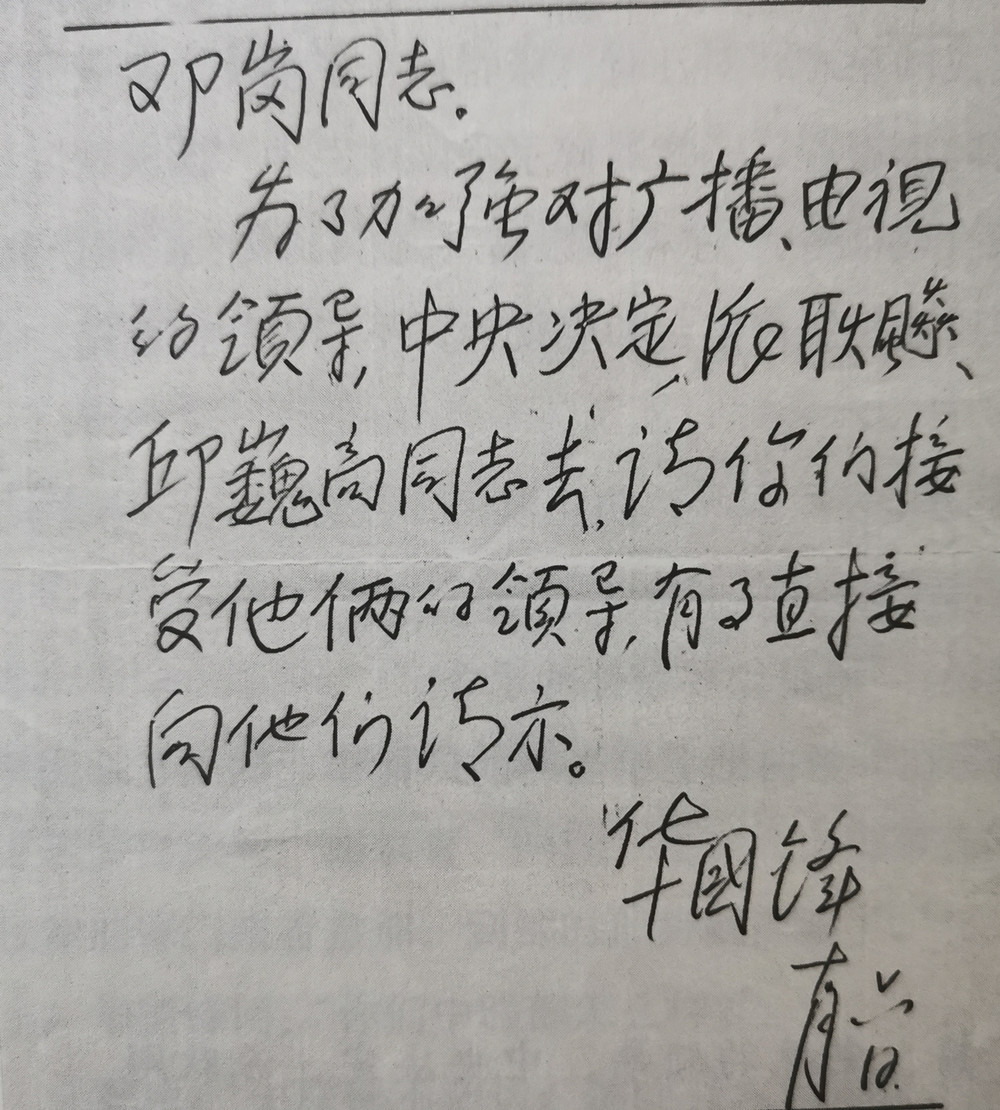 邓岗同志。
为了加强对广播、电视
的領导,中央决定,派耿飚、
邱巍高同志去,请你们接
受他俩的領导,有了直接
向他们请示。
华國锋
十月六日